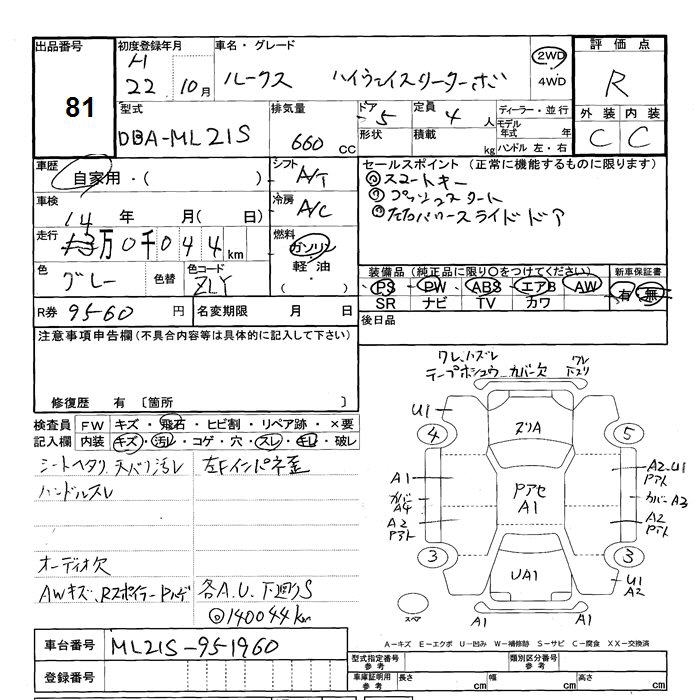 出品番号
81
初度登録年月
H
22 10月
車名・グレード
ルークス ハイウェイスターターボ
2WD
4WD
評価点
R
外装 内装
C C
型式
DBA-ML21S
排気量
660 cc
ドア
5
形状
定員
4 人
積載
kg
ディーラー・並行
モデル年式 年
ハンドル 左・右
車歴
自家用・( )
シフト
A/T
車検
14 年 月( 日)
冷房
A/C
走行
万0千044km
燃料
ガソリン
軽油
( )
色
グレー
色替
色コード
ZLY
R券 9560 円
名変期限 月 日
セールスポイント(正常に機能するものに限ります)
スマートキー
プッシュスタート
左右パワースライドドア
装備品(純正品に限り○をつけてください)
新車保証書
PS PW ABS エアB AW
SR ナビ TV カワ
有・無
後日品
注意事項申告欄(不具合内容等は具体的に記入して下さい)
修復歴 有 〔箇所 〕
検査員記入欄
FW キズ・飛石・ヒビ割・リペア跡・×要
内装 キズ・汚レ・コゲ・穴・スレ・キレ・破レ
シートヘタリ 天バリ汚レ 左Fインパネ歪
ハンドルスレ
オーディオ欠
AWキズ、Rスポイラー
各A.U.下廻りS
◎140044km
ワレ、ハズレ
テープホシュウ カバー欠
ワレ
U1
4
5
ズリA
A1
カバーA4
A2
PアセA1
A2-U1
カバーA3
A2
3
3
UA1
U1
A2
スペア
A1
A1
車台番号 ML21S-951960
登録番号
A-キズ E-エクボ U-凹み W-補修跡 S-サビ C-腐食 XX-交換済
型式指定番号 参考
類別区分番号 参考
車庫証明用 参考
長さ cm
幅 cm
高さ cm